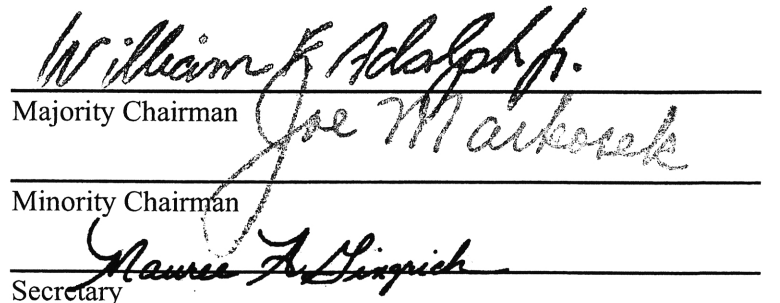 William K Adolph Jr.
Majority Chairman
Joe Markosek
Minority Chairman
Mauree A. Gingrich
Secretary